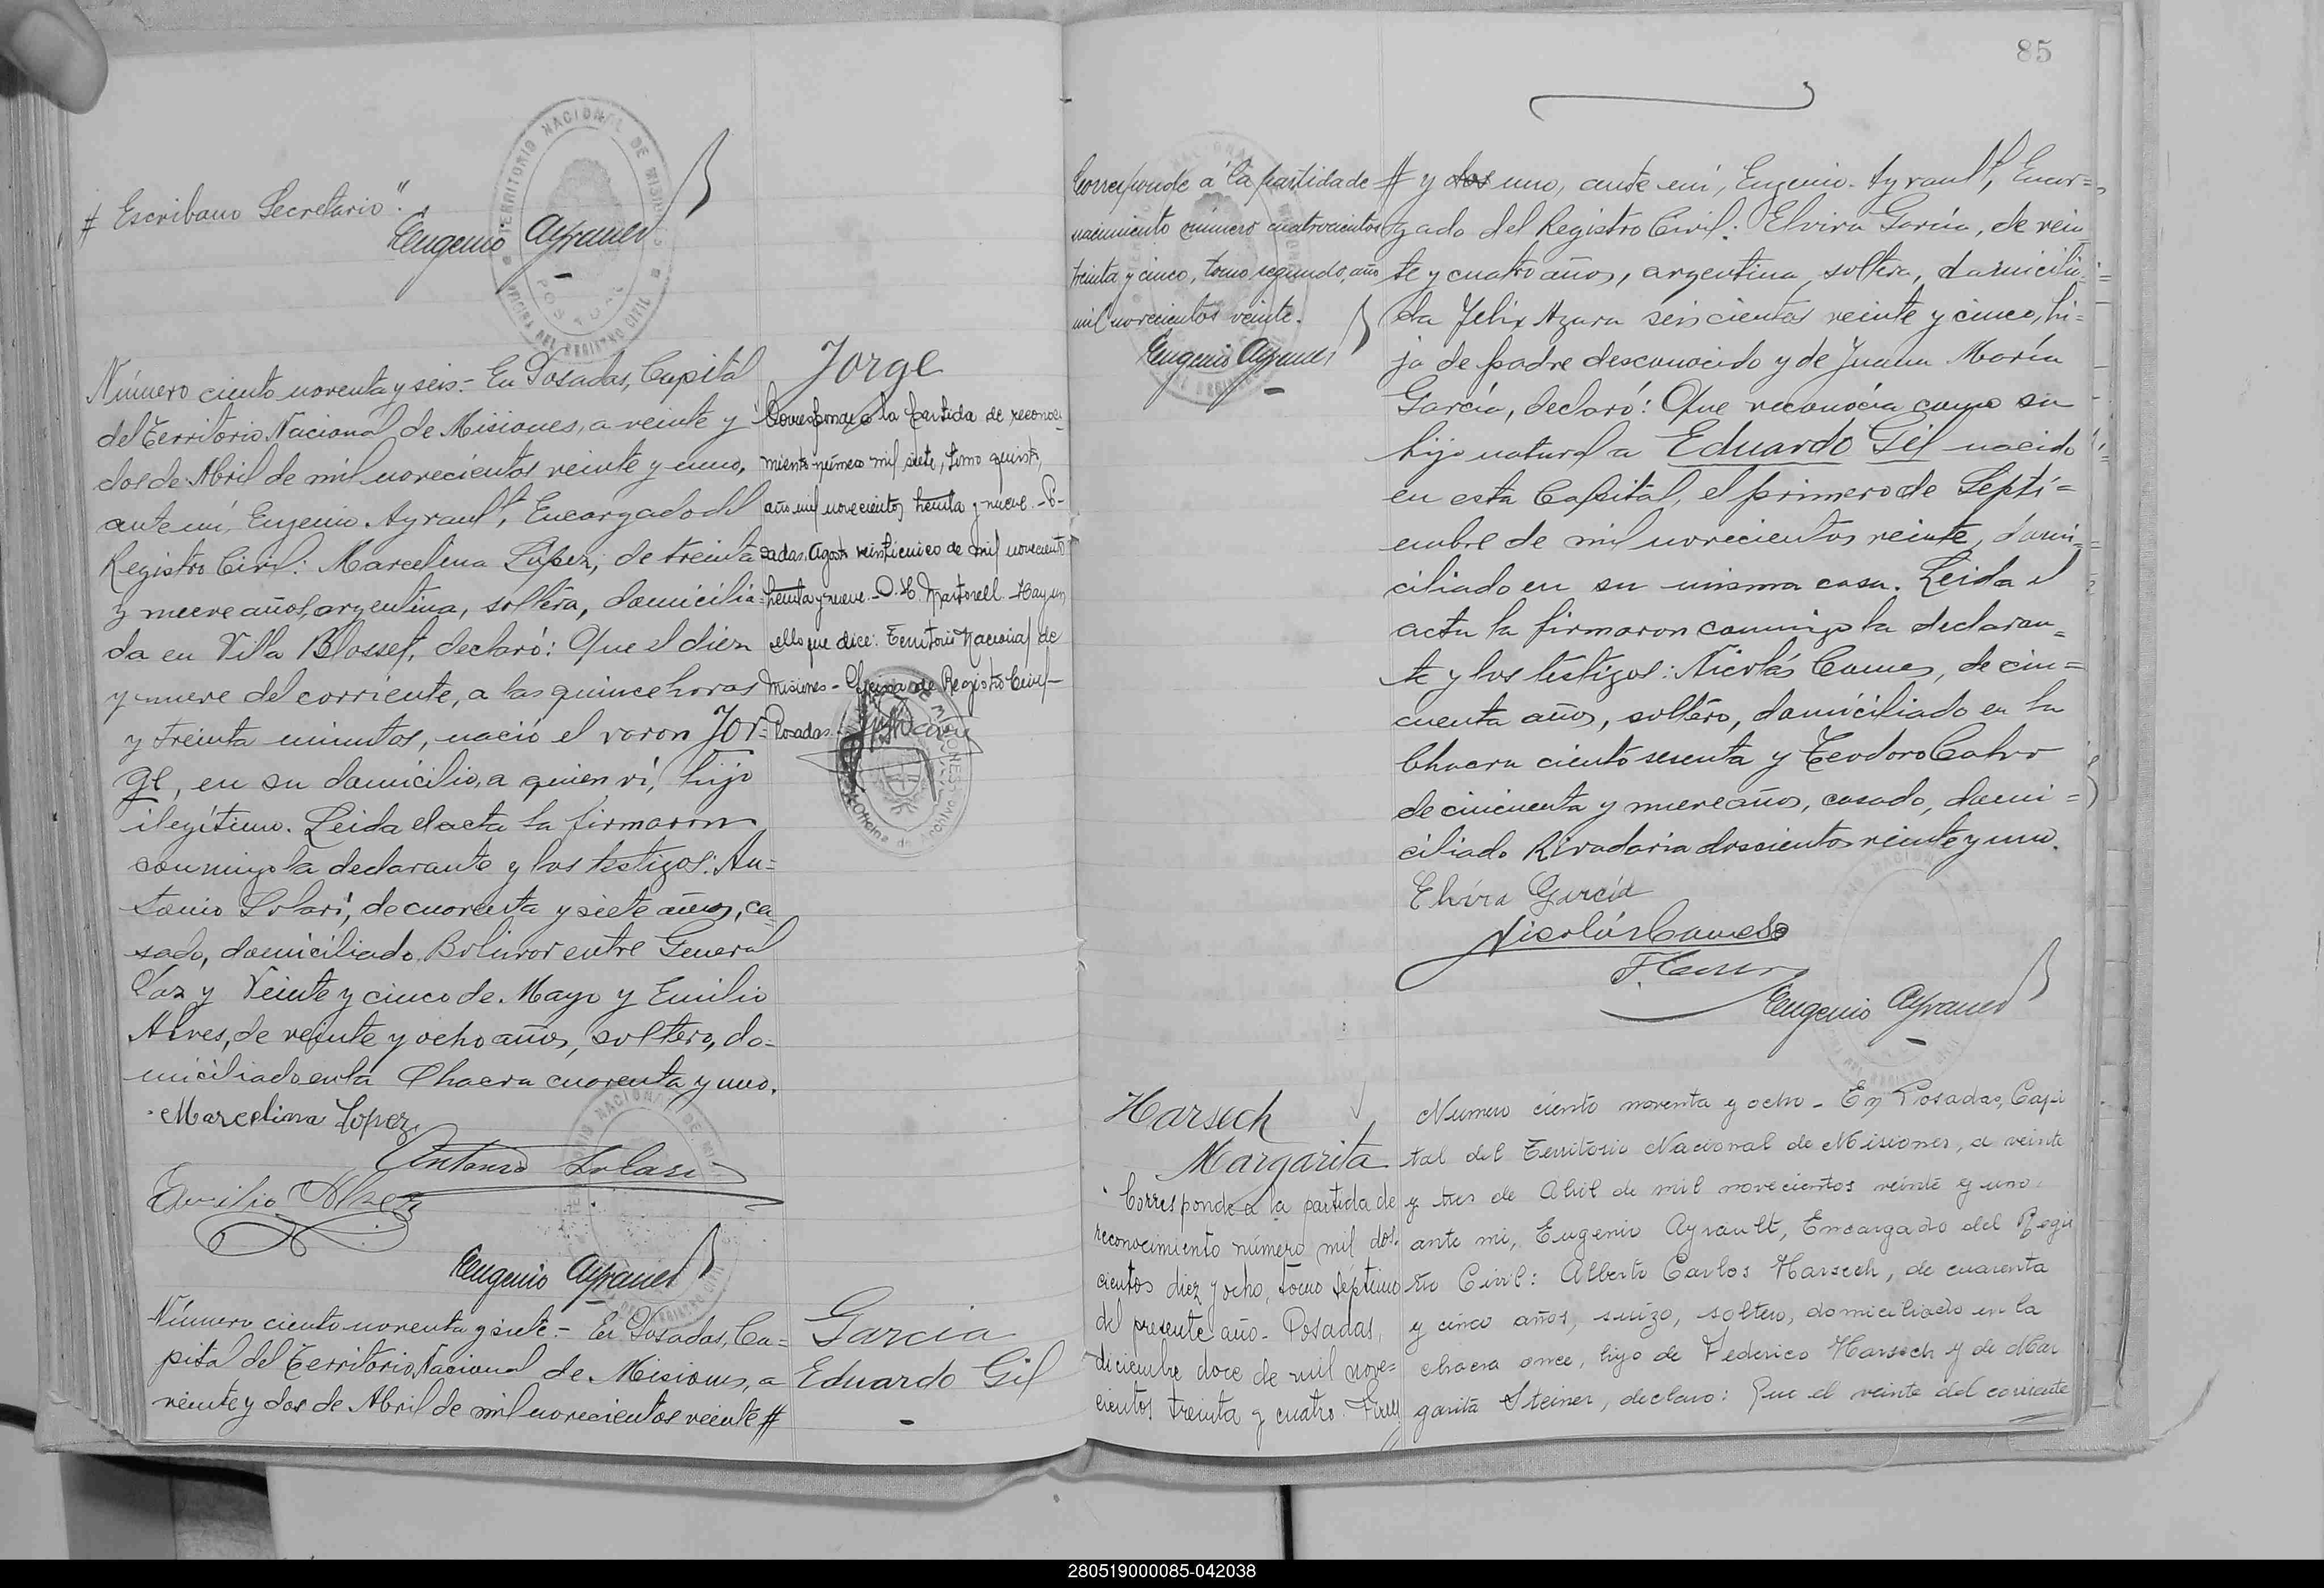 # Escribano Secretario".
Eugenio Ayrault
TERRITORIO NACIONAL DE MISIONES
POSADAS
OFICINA DEL REGISTRO CIVIL
Número ciento noventa y seis.- En Posadas, Capital
del Territorio Nacional de Misiones, a veinte y
dos de Abril de mil novecientos veinte y uno,
ante mí, Eugenio Ayrault, Encargado del
Registro Civil: Marcelina López, de treinta
y nueve años, argentina, soltera, domicilia-
da en Villa Blosset, declaró: Que el diez
y nueve del corriente, a las quince horas
y treinta minutos, nació el varon Jor-
ge, en su domicilio, a quien ví, hijo
ilegítimo. Leida el acta la firmaron
conmigo la declarante y los testigos: An=
tonio Solari, de cuarenta y siete años, ca
sado, domiciliado Bolivar entre General
Paz y Veinte y cinco de Mayo y Emilio
Alves, de veinte y ocho años, soltero, do-
miciliado en la Chacra cuarenta y uno.
Marcelina Lopez
Antonio Solari
Emilio Alvez
Eugenio Ayrault
Número ciento noventa y siete.- En Posadas, Ca=
pital del Territorio Nacional de Misiones, a
veinte y dos de Abril de mil novecientos veinte #
Jorge
Corresponde a la partida de reconoci-
miento número mil siete, tomo quinto,
año mil novecientos treinta y nueve.- Po-
sadas, Agosto veinticinco de mil novecientos
treinta y nueve.- D. H. Martorell.- Hay un
sello que dice: Territorio Nacional de
Misiones - Oficina de Registro Civil-
Posadas.-
Garcia
Eduardo Gil
85
Corresponde á la partida de
nacimiento número cuatrocientos
treinta y cinco, tomo segundo, año
mil novecientos veinte.
Eugenio Ayrault
# y dos uno, ante mí, Eugenio Ayrault, Encar=
gado del Registro Civil: Elvira García, de vein
te y cuatro años, argentina, soltera, domicilia
da Felix Azara seiscientos veinte y cinco, hi=
ja de padre desconocido y de Juana María
García, declaró: Que reconócia como su
hijo natural a Eduardo Gil nacido
en esta Capital, el primero de Septi=
embre de mil novecientos veinte, domi=
ciliado en su misma casa. Leida el
acta la firmaron conmigo la declaran=
te y los testigos: Nicolás Comes, de cin=
cuenta años, soltero, domiciliado en la
Chacra ciento sesenta y Teodoro Calvo
de cincuenta y nueve años, casado, domi=
ciliado Rivadavia doscientos veinte y uno.
Elvira García
Eugenio Ayrault
Harsech
Margarita
Corresponde a la partida de
reconocimiento número mil dos-
cientos diez y ocho, tomo séptimo
del presente año- Posadas,
diciembre doce de mil nove=
cientos treinta y cuatro.
Numero ciento noventa y ocho - En Posadas, Capi
tal del Territorio Nacional de Misiones, a veinte
y tres de Abril de mil novecientos veinte y uno.
ante mi, Eugenio Ayrault, Encargado del Regis
tro Civil: Alberto Carlos Harsech, de cuarenta
y cinco años, suizo, soltero, domiciliado en la
chacra once, hijo de Federico Harsech y de Mar
garita Steiner, declaro: Que el veinte del corriente
280519000085-042038